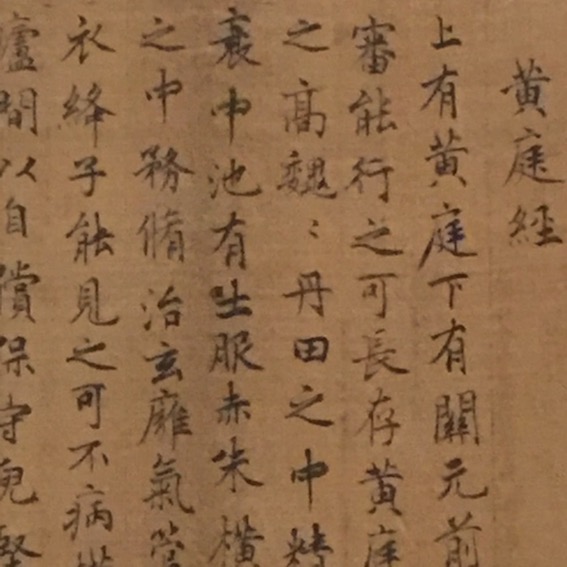 黄庭經
上有黄庭下有關元前
審能行之可長存黄庭
之高巍〻丹田之中精
裹中池有士服赤朱橫
之中務脩治玄雍氣管
衣絳子能見之可不病
廬間以自償保守皃堅